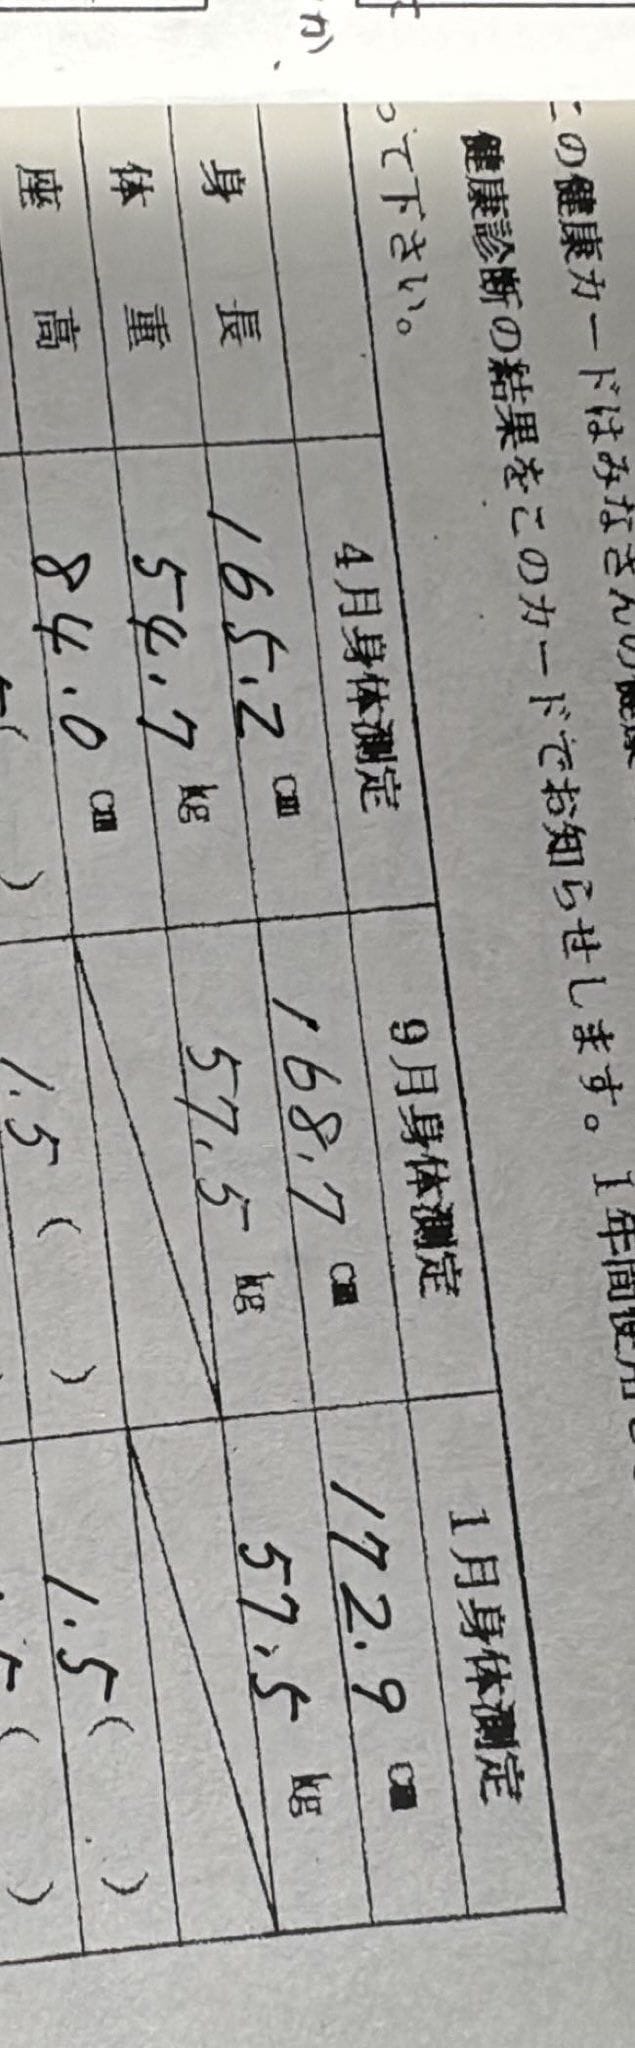 この健康カードはみなさんの健康
健康診断の結果をこのカードでお知らせします。1年間使用
って下さい。
4月身体測定 9月身体測定 1月身体測定
身長 165.2 cm 168.7 cm 172.9 cm
体重 54.7 kg 57.5 kg 57.5 kg
座高 84.0 cm
( ) 1.5 ( ) 1.5 ( )